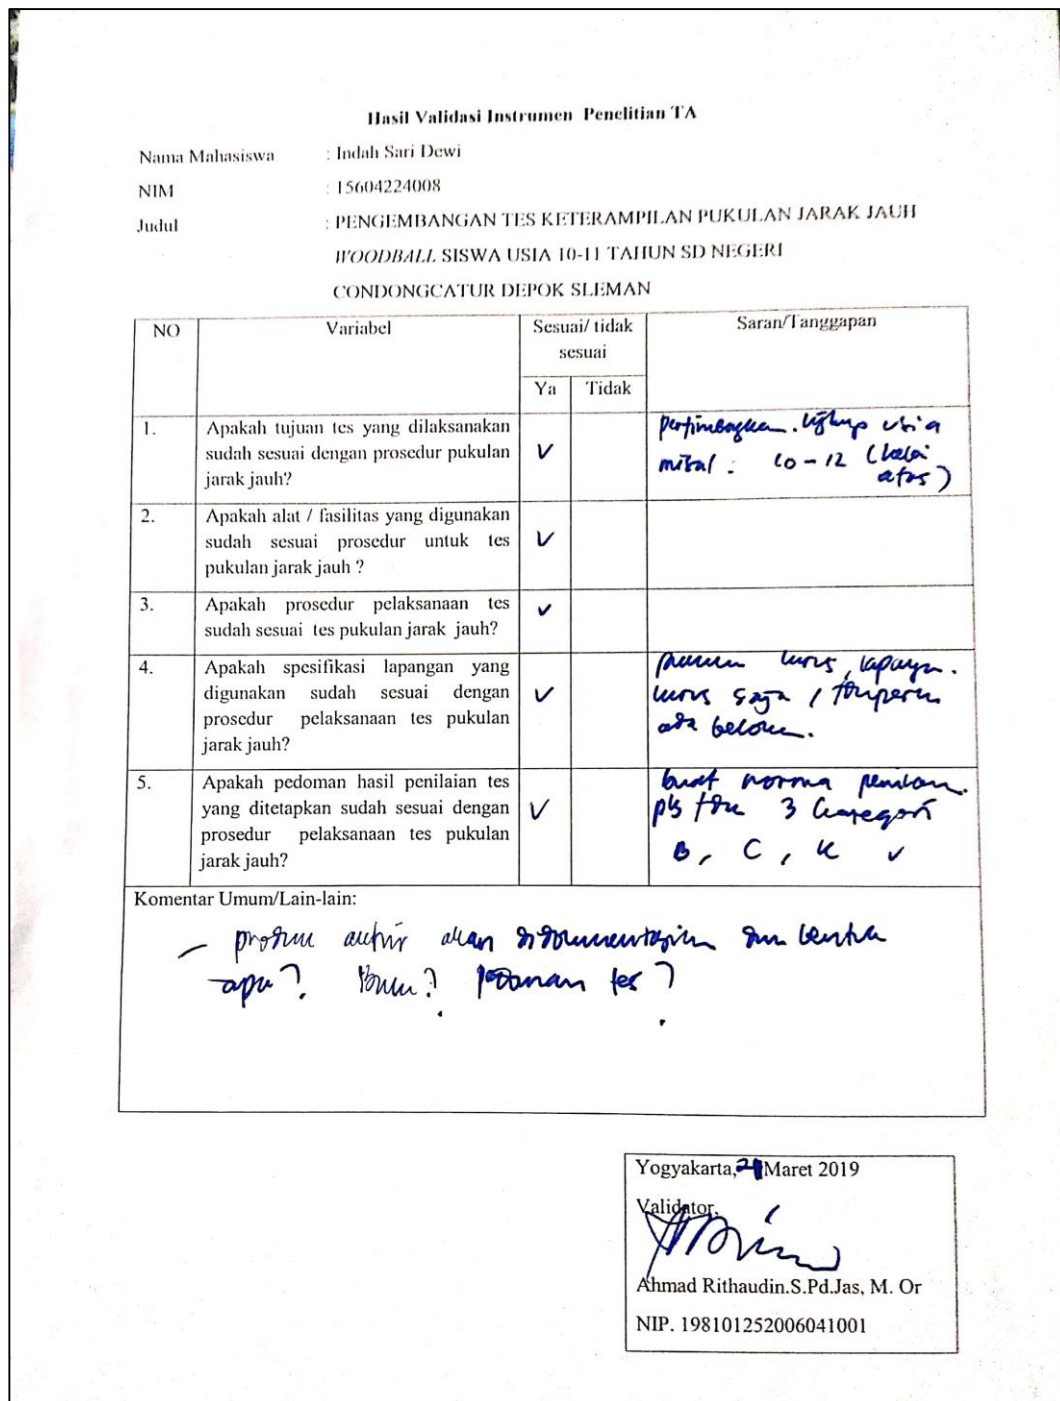 Hasil Validasi Instrumen Penelitian TA
Nama Mahasiswa : Indah Sari Dewi
NIM : 15604224008
Judul : PENGEMBANGAN TES KETERAMPILAN PUKULAN JARAK JAUH
WOODBALL SISWA USIA 10-11 TAHUN SD NEGERI
CONDONGCATUR DEPOK SLEMAN
NO Variabel Sesuai/ tidak Saran/Tanggapan
sesuai
Ya Tidak
1. Apakah tujuan tes yang dilaksanakan
sudah sesuai dengan prosedur pukulan
jarak jauh?
V
usia
misal : 10-12 (
atas)
2. Apakah alat / fasilitas yang digunakan
sudah sesuai prosedur untuk tes
pukulan jarak jauh ?
V
3. Apakah prosedur pelaksanaan tes
sudah sesuai tes pukulan jarak jauh?
V
4. Apakah spesifikasi lapangan yang
digunakan sudah sesuai dengan
prosedur pelaksanaan tes pukulan
jarak jauh?
V
lurus
lurus saja /
ada
5. Apakah pedoman hasil penilaian tes
yang ditetapkan sudah sesuai dengan
prosedur pelaksanaan tes pukulan
jarak jauh?
V
buat norma
3 kategori
B, C, K
Komentar Umum/Lain-lain:
- akhir akan
apa? tes?
Yogyakarta, Maret 2019
Validator,
Ahmad Rithaudin.S.Pd.Jas, M. Or
NIP. 198101252006041001